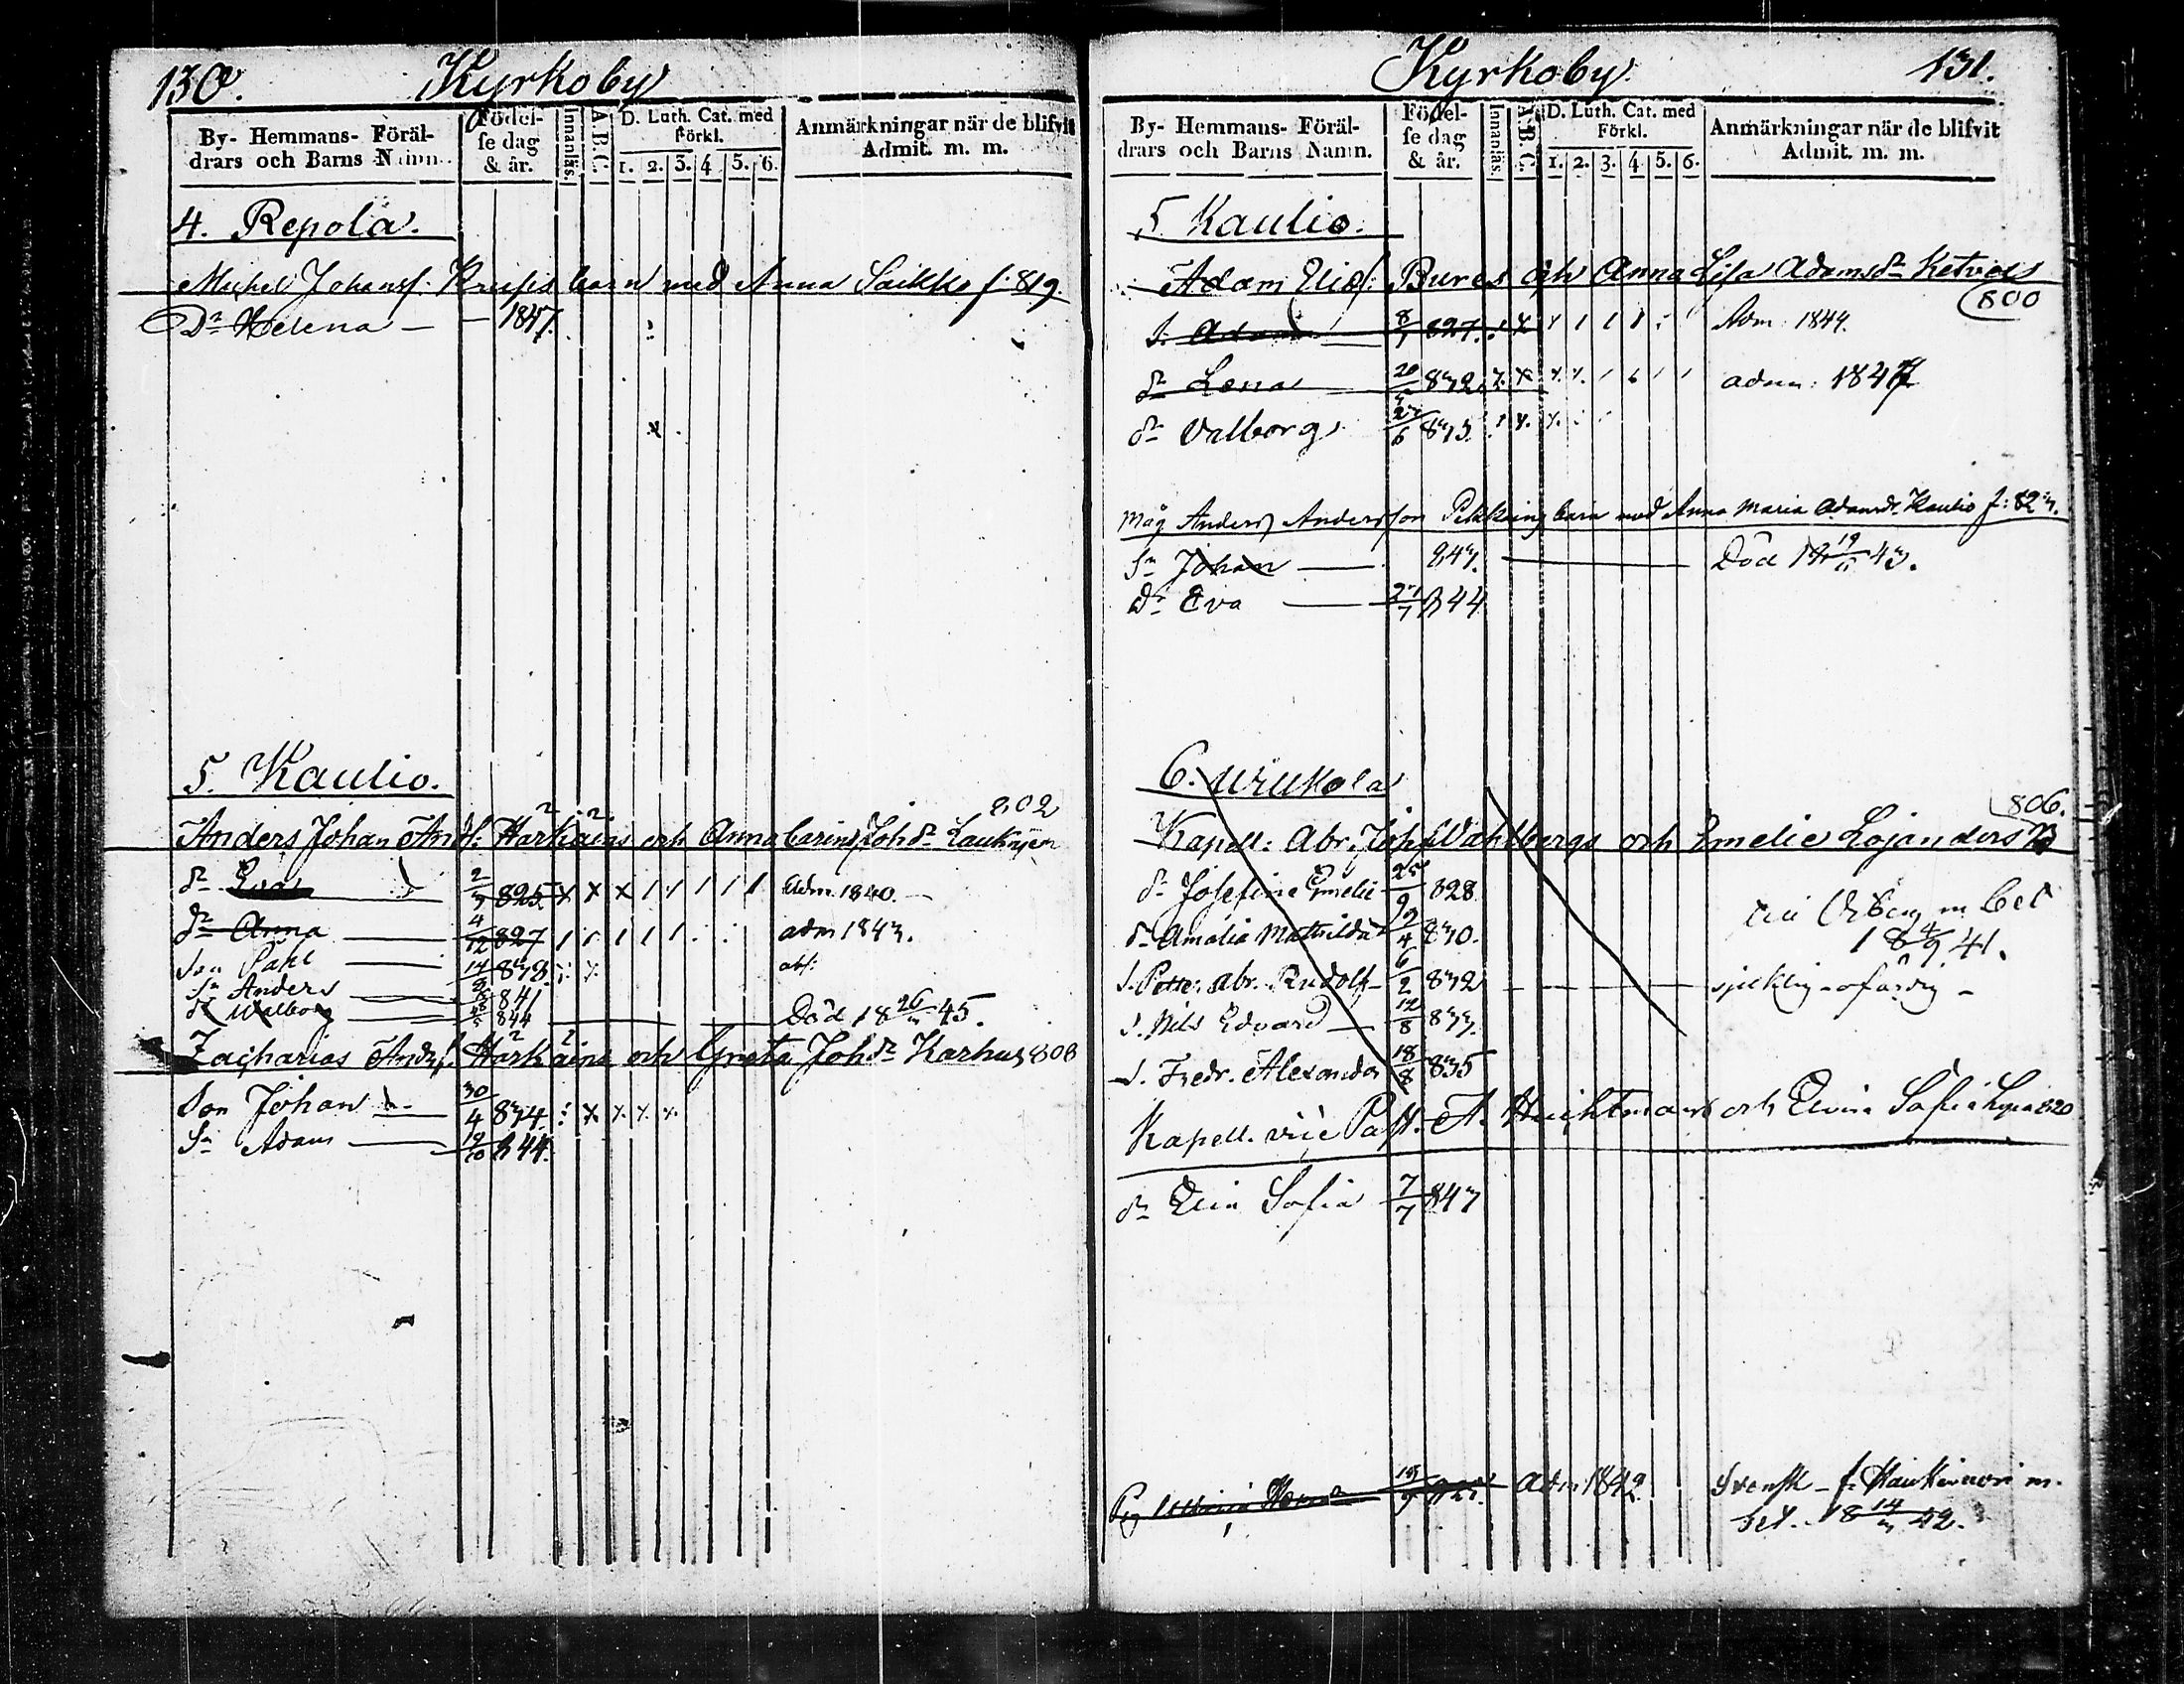 130.
Kyrkoby
By- Hemmans- Föräl-
drars och Barns Namn.
Födel-
se dag
& år.
Innanläs.
A.B.C.
D. Luth. Cat. med
Förkl.
1. 2. 3. 4 5. 6.
Anmärkningar när de blifvit
Admit. m. m.
4. Repola.
Michel Johansf. barn med Anna Saikko f. 819.
Dr Helena — 1847.
5. Kaulio.
802
Anders Johan Andf. Harkains och Anna Carin Johdr
dr Eva 2/3 825 x x x 1 x 1 1 1 adm 1840.
dr Anna 4/12 827 1 1 1 1 1 adm 1843.
Son Påhl 14 838
Sn Anders 841
dr Walborg 844 Död 18 26 45.
Zacharias Andrsf. Harkains och Greta Johdr Karhus 808
Son Johan 30/4 834.
Sn Adam 19/10 844.
Kyrkoby
131.
By- Hemmans- Föräl-
drars och Barns Namn.
Födel-
se dag
& år.
Innanläs.
A.B.C.
D. Luth. Cat. med
Förkl.
1. 2. 3. 4 5. 6.
Anmärkningar när de blifvit
Admit. m. m.
5 Kaulio.
Adam Eliæf. Bures och Anna Lisa Adamsdr
800
S. Adam 8/1 827. Adm. 1844.
dr Lena 20 832 adm. 1847
dr Valborg 27/6 835.
Måg Anders Andersson barn med Anna Maria Adamdr. Kaulio f: 823.
Sn Johan 843. Död 18 19/11 43.
dr Eva 27/7 844
6.
806.
Kapell: Abr. Joh. Wahlbergs och Emelie Lojanders
dr Josefina Emelie 25/9 828
dr Amalia Mathilda 4 830.
till m. bet
18 4/9 41.
S. Petter Abr. Rudolf 6/2 832 sjuklig ofärdig
S. Nils Edvard 12/8 833.
S. Fredr. Alexander 18/8 835
Kapell. vice Past. A. och Elvira Sofia 820
dr Elin Sofia 7/7 847
Adm 1842
Svensk
bet. 18 14 42.